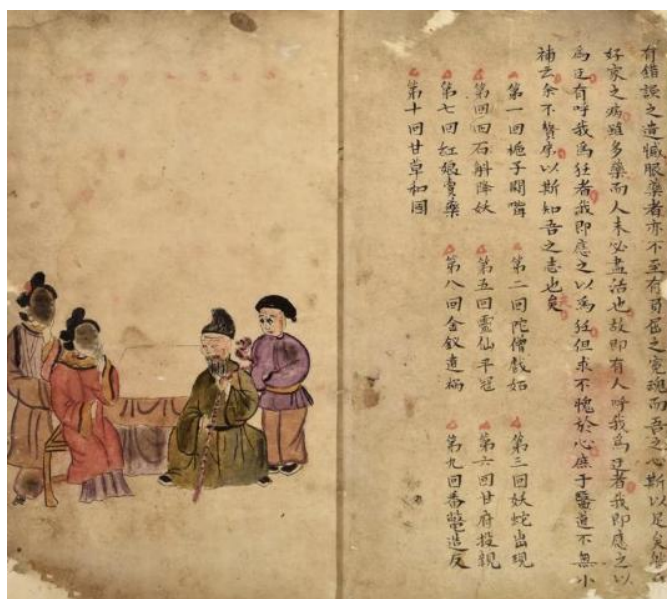 有錯誤之遺憾服藥者亦不至有負屈之冤魂而吾之心斯以足矣
好家之病雖多藥而人未必盡活也故即有人呼我為迂者我即應之以
為迂有呼我為狂者我即應之以為狂但求不愧於心庶于醫道不無小
補云余不贅序以斯知吾之志也矣
第一回栀子鬧嘴 第二回陀僧戲姑 第三回妖蛇出現
第四回石斛降妖 第五回靈仙平冠 第六回甘府投親
第七回紅娘賣藥 第八回金釵遺禍 第九回番鱉造反
第十回甘草和國